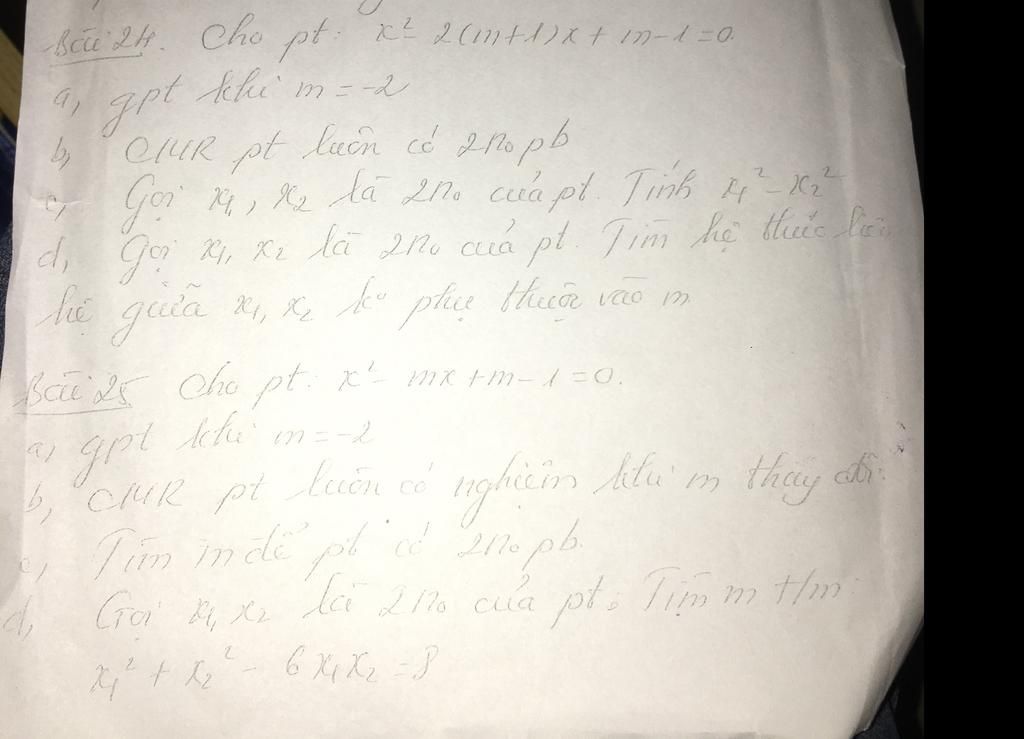 Bài 24. Cho pt: x² - 2(m+1)x + m - 1 = 0.
a, gpt khi m = -2
b, CMR pt luôn có 2 no pb
c, Gọi x₁, x₂ là 2 no của pt. Tính x₁² - x₂²
d, Gọi x₁, x₂ là 2 no của pt. Tìm hệ thức liên
hệ giữa x₁, x₂ ko phụ thuộc vào m
Bài 25 Cho pt: x² - mx + m - 1 = 0.
a, gpt khi m = -2
b, CMR pt luôn có nghiệm khi m thay đổi.
c, Tìm m để pt có 2 no pb.
d, Gọi x₁, x₂ là 2 no của pt. Tìm m t/m:
x₁² + x₂² - 6x₁x₂ = 8